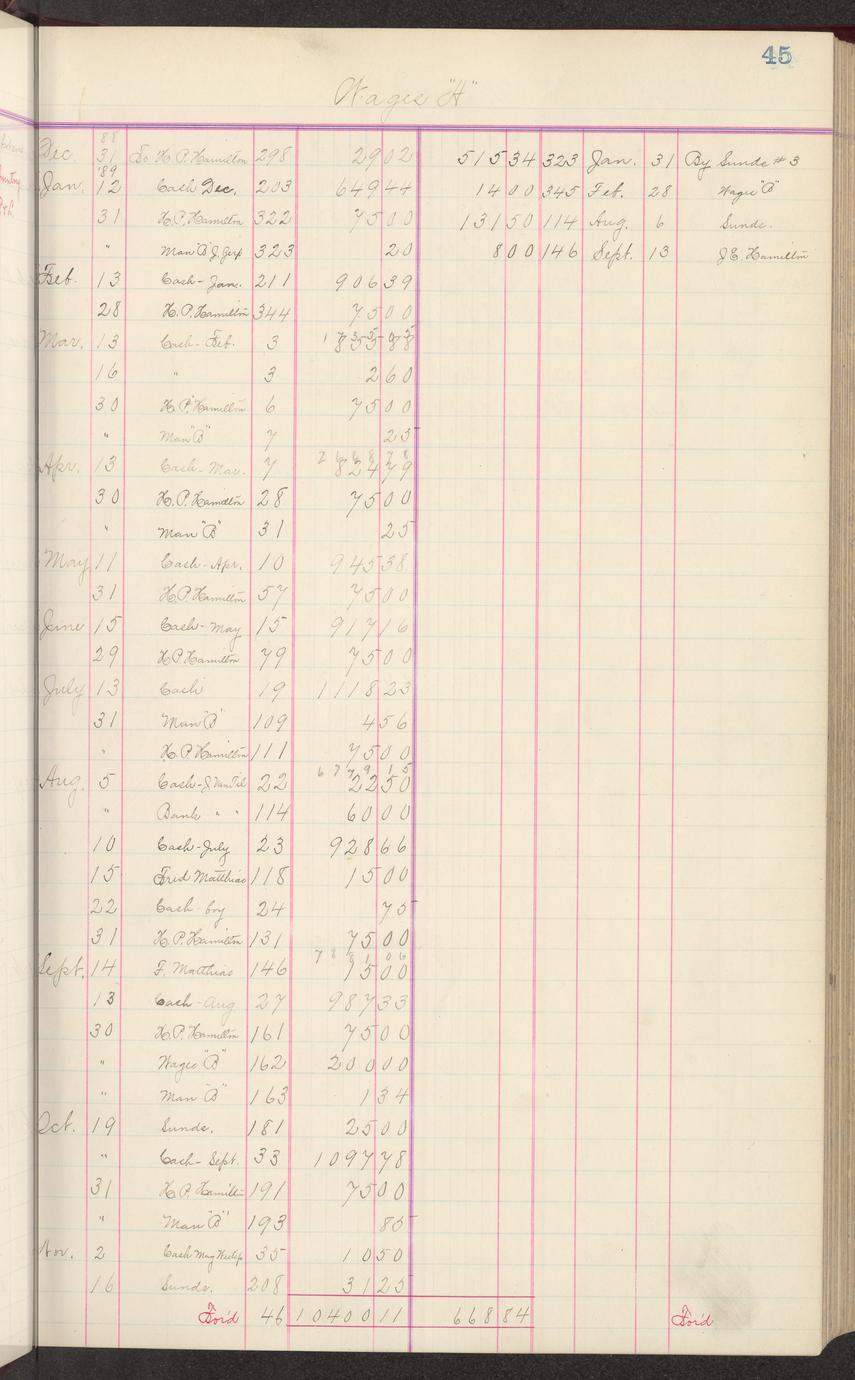 45
Wages "A"
88
Dec. 31 To H.P. Hamilton 298 29 02 515 34 323 Jan. 31 By Sunds #3
'89
Jan. 12 Cash Dec. 203 649 44 14 00 345 Feb. 28 Wages "B"
31 H.P. Hamilton 322 75 00 131 50 114 Aug. 6 Sunds.
" Man "B" 323 20 8 00 146 Sept. 13 J.E. Hamilton
Feb. 13 Cash - Jan. 211 906 39
28 H.P. Hamilton 344 75 00
Mar. 13 Cash - Feb. 3 855 88
16 " 3 2 60
30 H.P. Hamilton 6 75 00
" Man "B" 7 25
Apr. 13 Cash - Mar. 7 824 79
30 H.P. Hamilton 28 75 00
" Man "B" 31 25
May 11 Cash - Apr. 10 945 38
31 H.P. Hamilton 57 75 00
June 15 Cash - May 15 917 16
29 H.P. Hamilton 79 75 00
July 13 Cash 19 1118 23
31 Man "B" 109 4 56
" H.P. Hamilton 111 75 00
6779 15
Aug. 5 Cash - J. Van Til 22 22 50
" Bank " " 114 60 00
10 Cash - July 23 928 66
15 Fred Matthias 118 15 00
22 Cash - boy 24 75
31 H.P. Hamilton 131 75 00
7881 06
Sept. 14 F. Matthias 146 15 00
13 Cash - Aug 27 987 33
30 H.P. Hamilton 161 75 00
" Wages "B" 162 200 00
" Man "B" 163 1 34
Oct. 19 Sunds. 181 25 00
" Cash - Sept. 33 1097 78
31 H.P. Hamilton 191 75 00
" Man "B" 193 85
Nov. 2 Cash 35 10 50
16 Sunds. 208 31 25
For'd 46 10400 11 668 84 For'd